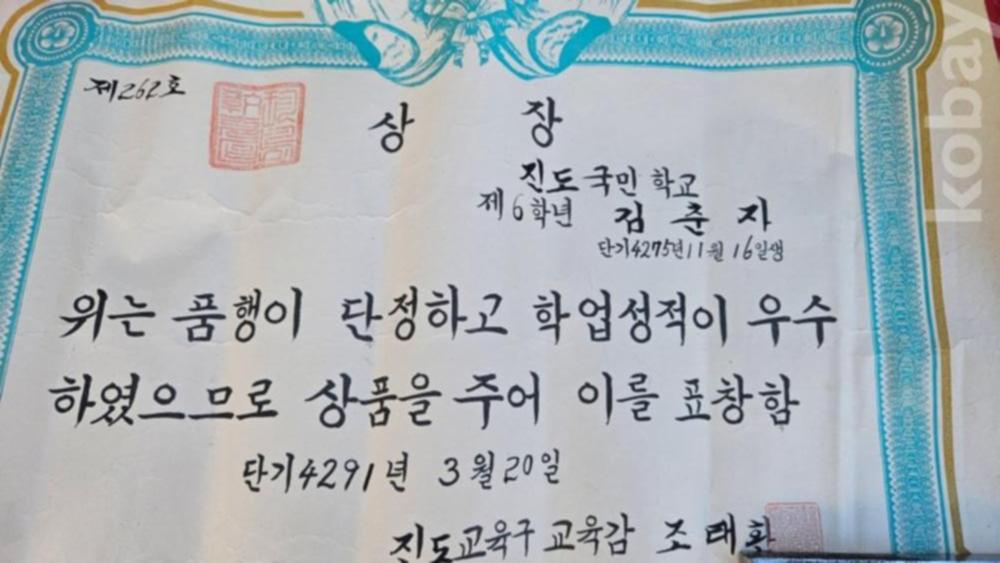 제262호
상 장
진도 국민 학교
제6학년 김 춘 자
단기4275년11월 16일생
위는 품행이 단정하고 학업성적이 우수
하였으므로 상품을 주어 이를 표창함
단기4291년 3월20일
진도교육구 교육감 조태환
kobay